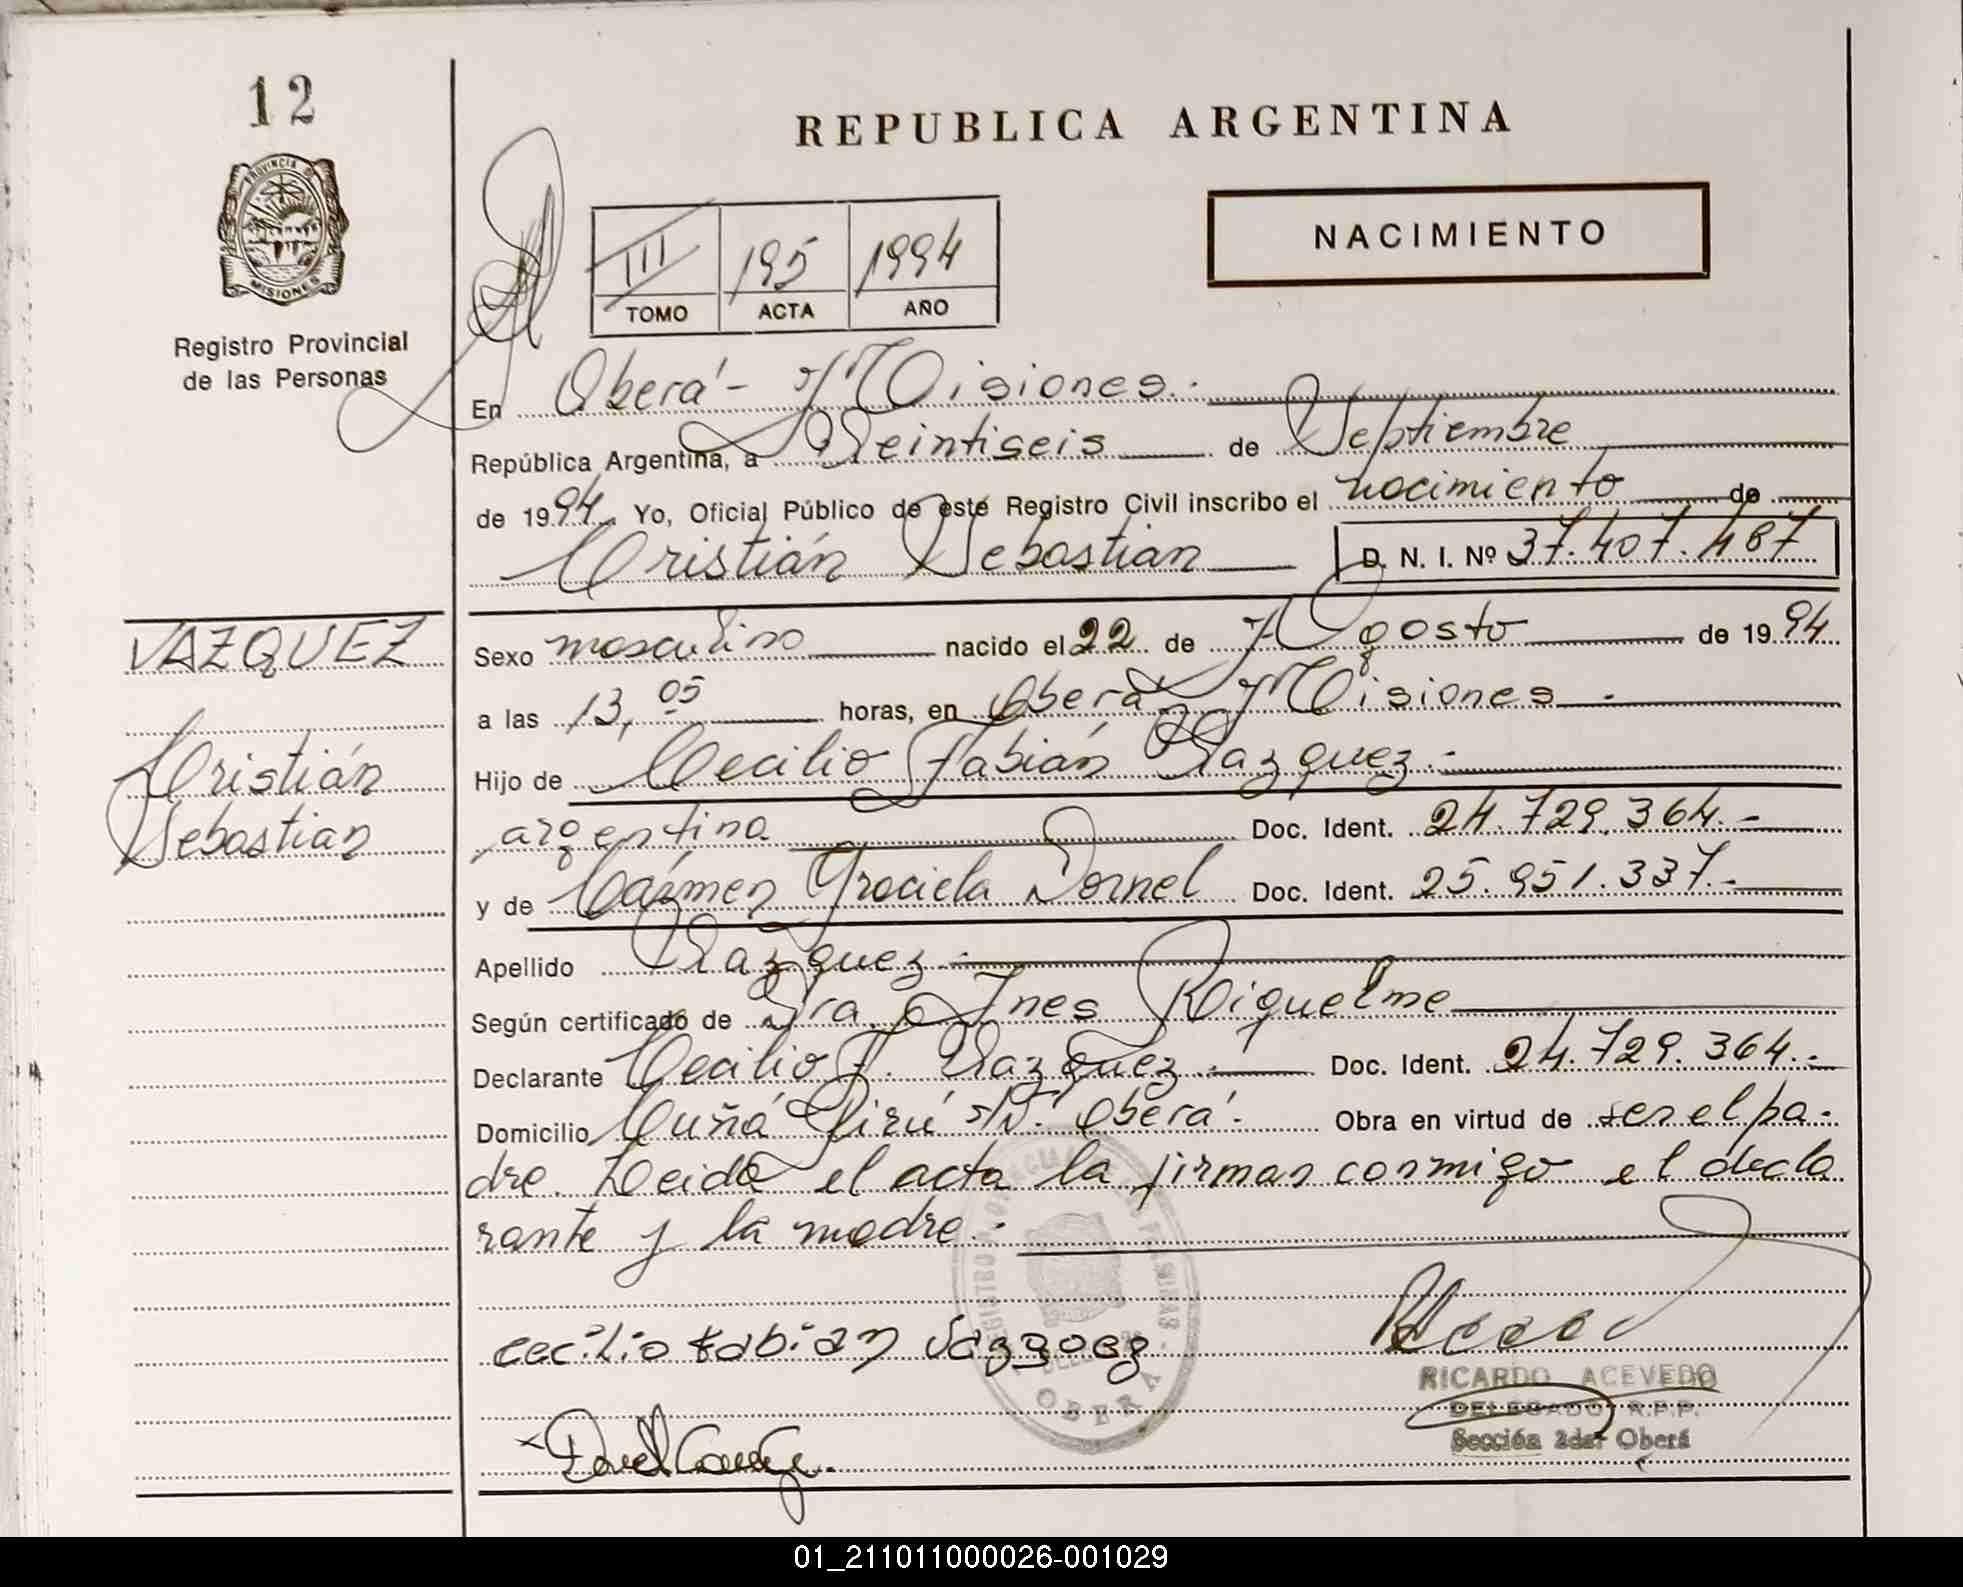 12
REPUBLICA ARGENTINA
PROVINCIA DE
MISIONES
Registro Provincial
de las Personas
NACIMIENTO
III 195 1994
TOMO ACTA AÑO
En Oberá - Misiones.-
República Argentina, a Veintiseis de Septiembre
de 1994. Yo, Oficial Público de este Registro Civil inscribo el nacimiento de
Cristián Sebastian D. N. I. Nº 37.407.487
VAZQUEZ
Cristián
Sebastian
Sexo masculino nacido el 22 de Agosto de 1994
a las 13,05 horas, en Oberá Misiones.-
Hijo de Cecilio Fabián Vazquez.-
argentino Doc. Ident. 24.729.364.-
y de Cármen Graciela Dornel Doc. Ident. 25.951.337.-
Apellido Vazquez.-
Según certificado de Dra. Ines Riquelme
Declarante Cecilio F. Vazquez.- Doc. Ident. 24.729.364.-
Domicilio Cuñá Pirú s/N. Oberá.- Obra en virtud de ser el pa-
dre. Leida el acta la firman conmigo el decla
rante y la madre.-
cecilio fabian Vazquez
RICARDO ACEVEDO
DELEGADO R.P.P.
Sección 2da. Oberá
OBERA
01_211011000026-001029